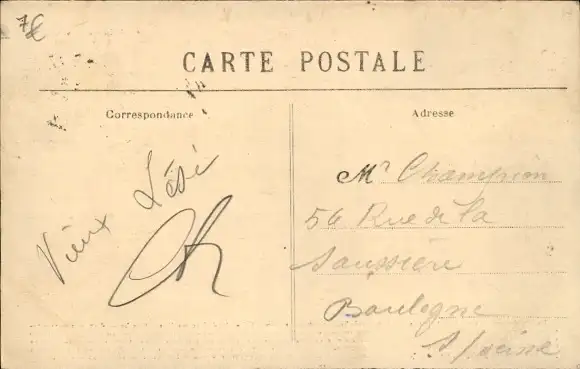 7€
CARTE POSTALE
Correspondance
Adresse
Vieux
Mr Champion
54 Rue de la
Saussière
Boulogne
s/seine